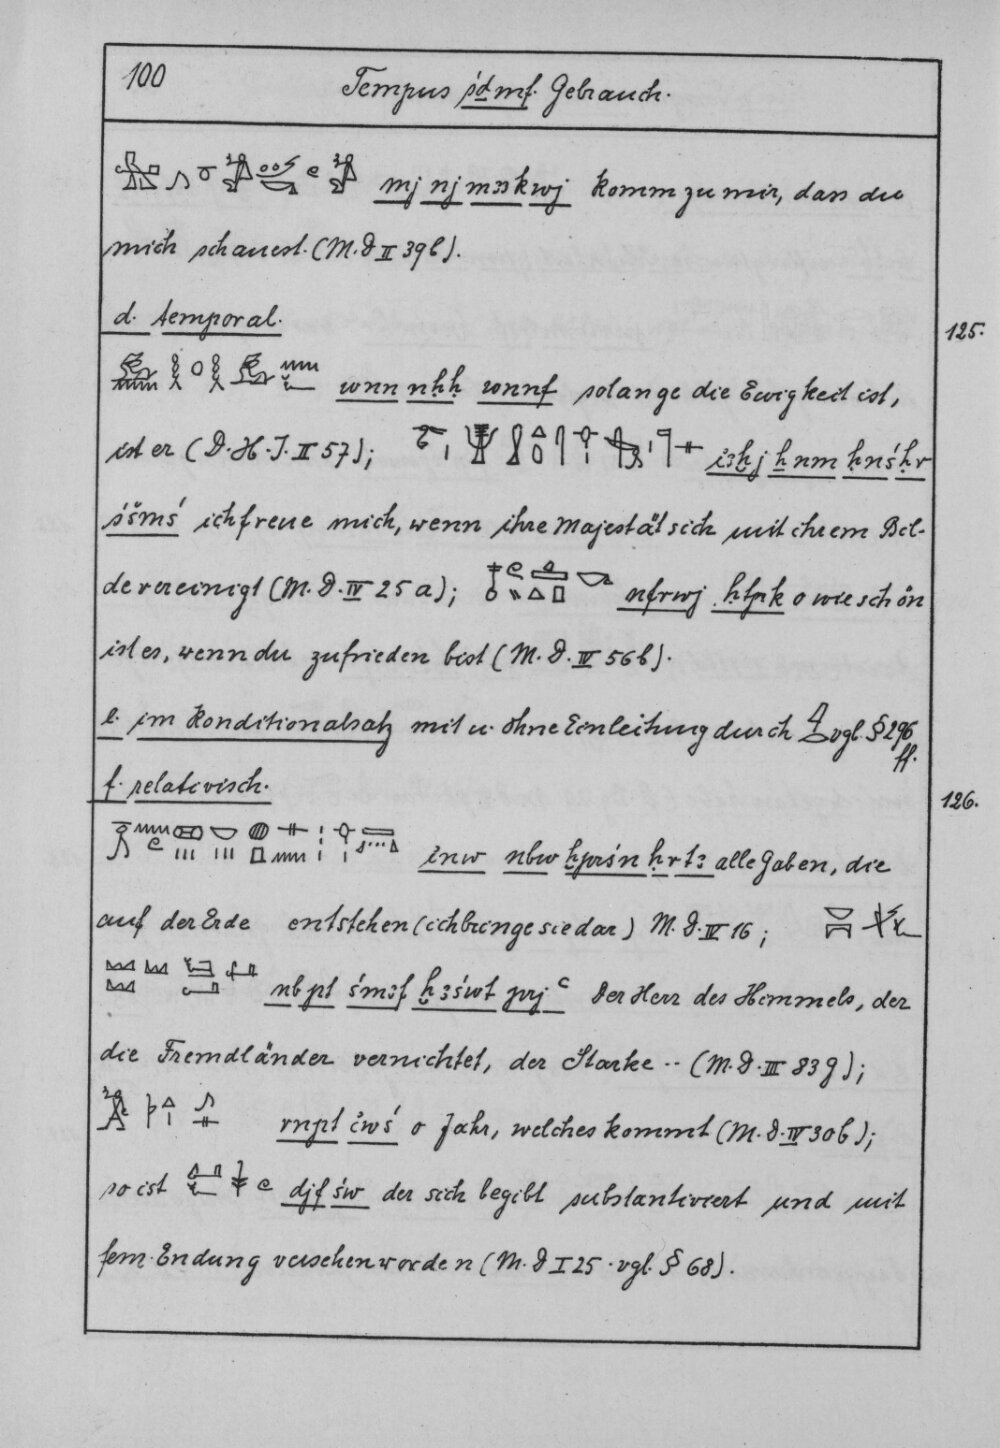 100 Tempus śḏmf. Gebrauch.
mj nj mꜣꜣkwj komm zu mir, dass du
mich schauest. (M.D II 39b).
d. temporal. 125.
wnn nḥḥ wnnf solange die Ewigkeit ist,
ist er (D.H.I. II 57); iꜣḫj ẖnm ḥnś ḥr
śšmś ich freue mich, wenn ihre Majestät sich mit ihrem Bil-
de vereinigt (M.D. IV 25a); nfrwj ḥtpk o wie schön
ist es, wenn du zufrieden bist (M.D. IV 56b).
e. im Konditionalsatz mit u. ohne Einleitung durch vgl. § 296
ff.
f. relativisch. 126.
inw nbw ḫprśn ḥr tꜣ alle Gaben, die
auf der Erde entstehen (ich bringe sie dar) M.D. IV 16;
nb pt śmꜣf ḫꜣśwt prj ꜥ Der Herr des Himmels, der
die Fremdländer vernichtet, der Starke ·· (M.D. III 83g);
rnpt iwś o Jahr, welches kommt (M.D. IV 30b);
so ist djf św der sich begibt substantiviert und mit
fem. Endung versehen worden (M.D I 25. vgl. § 68).